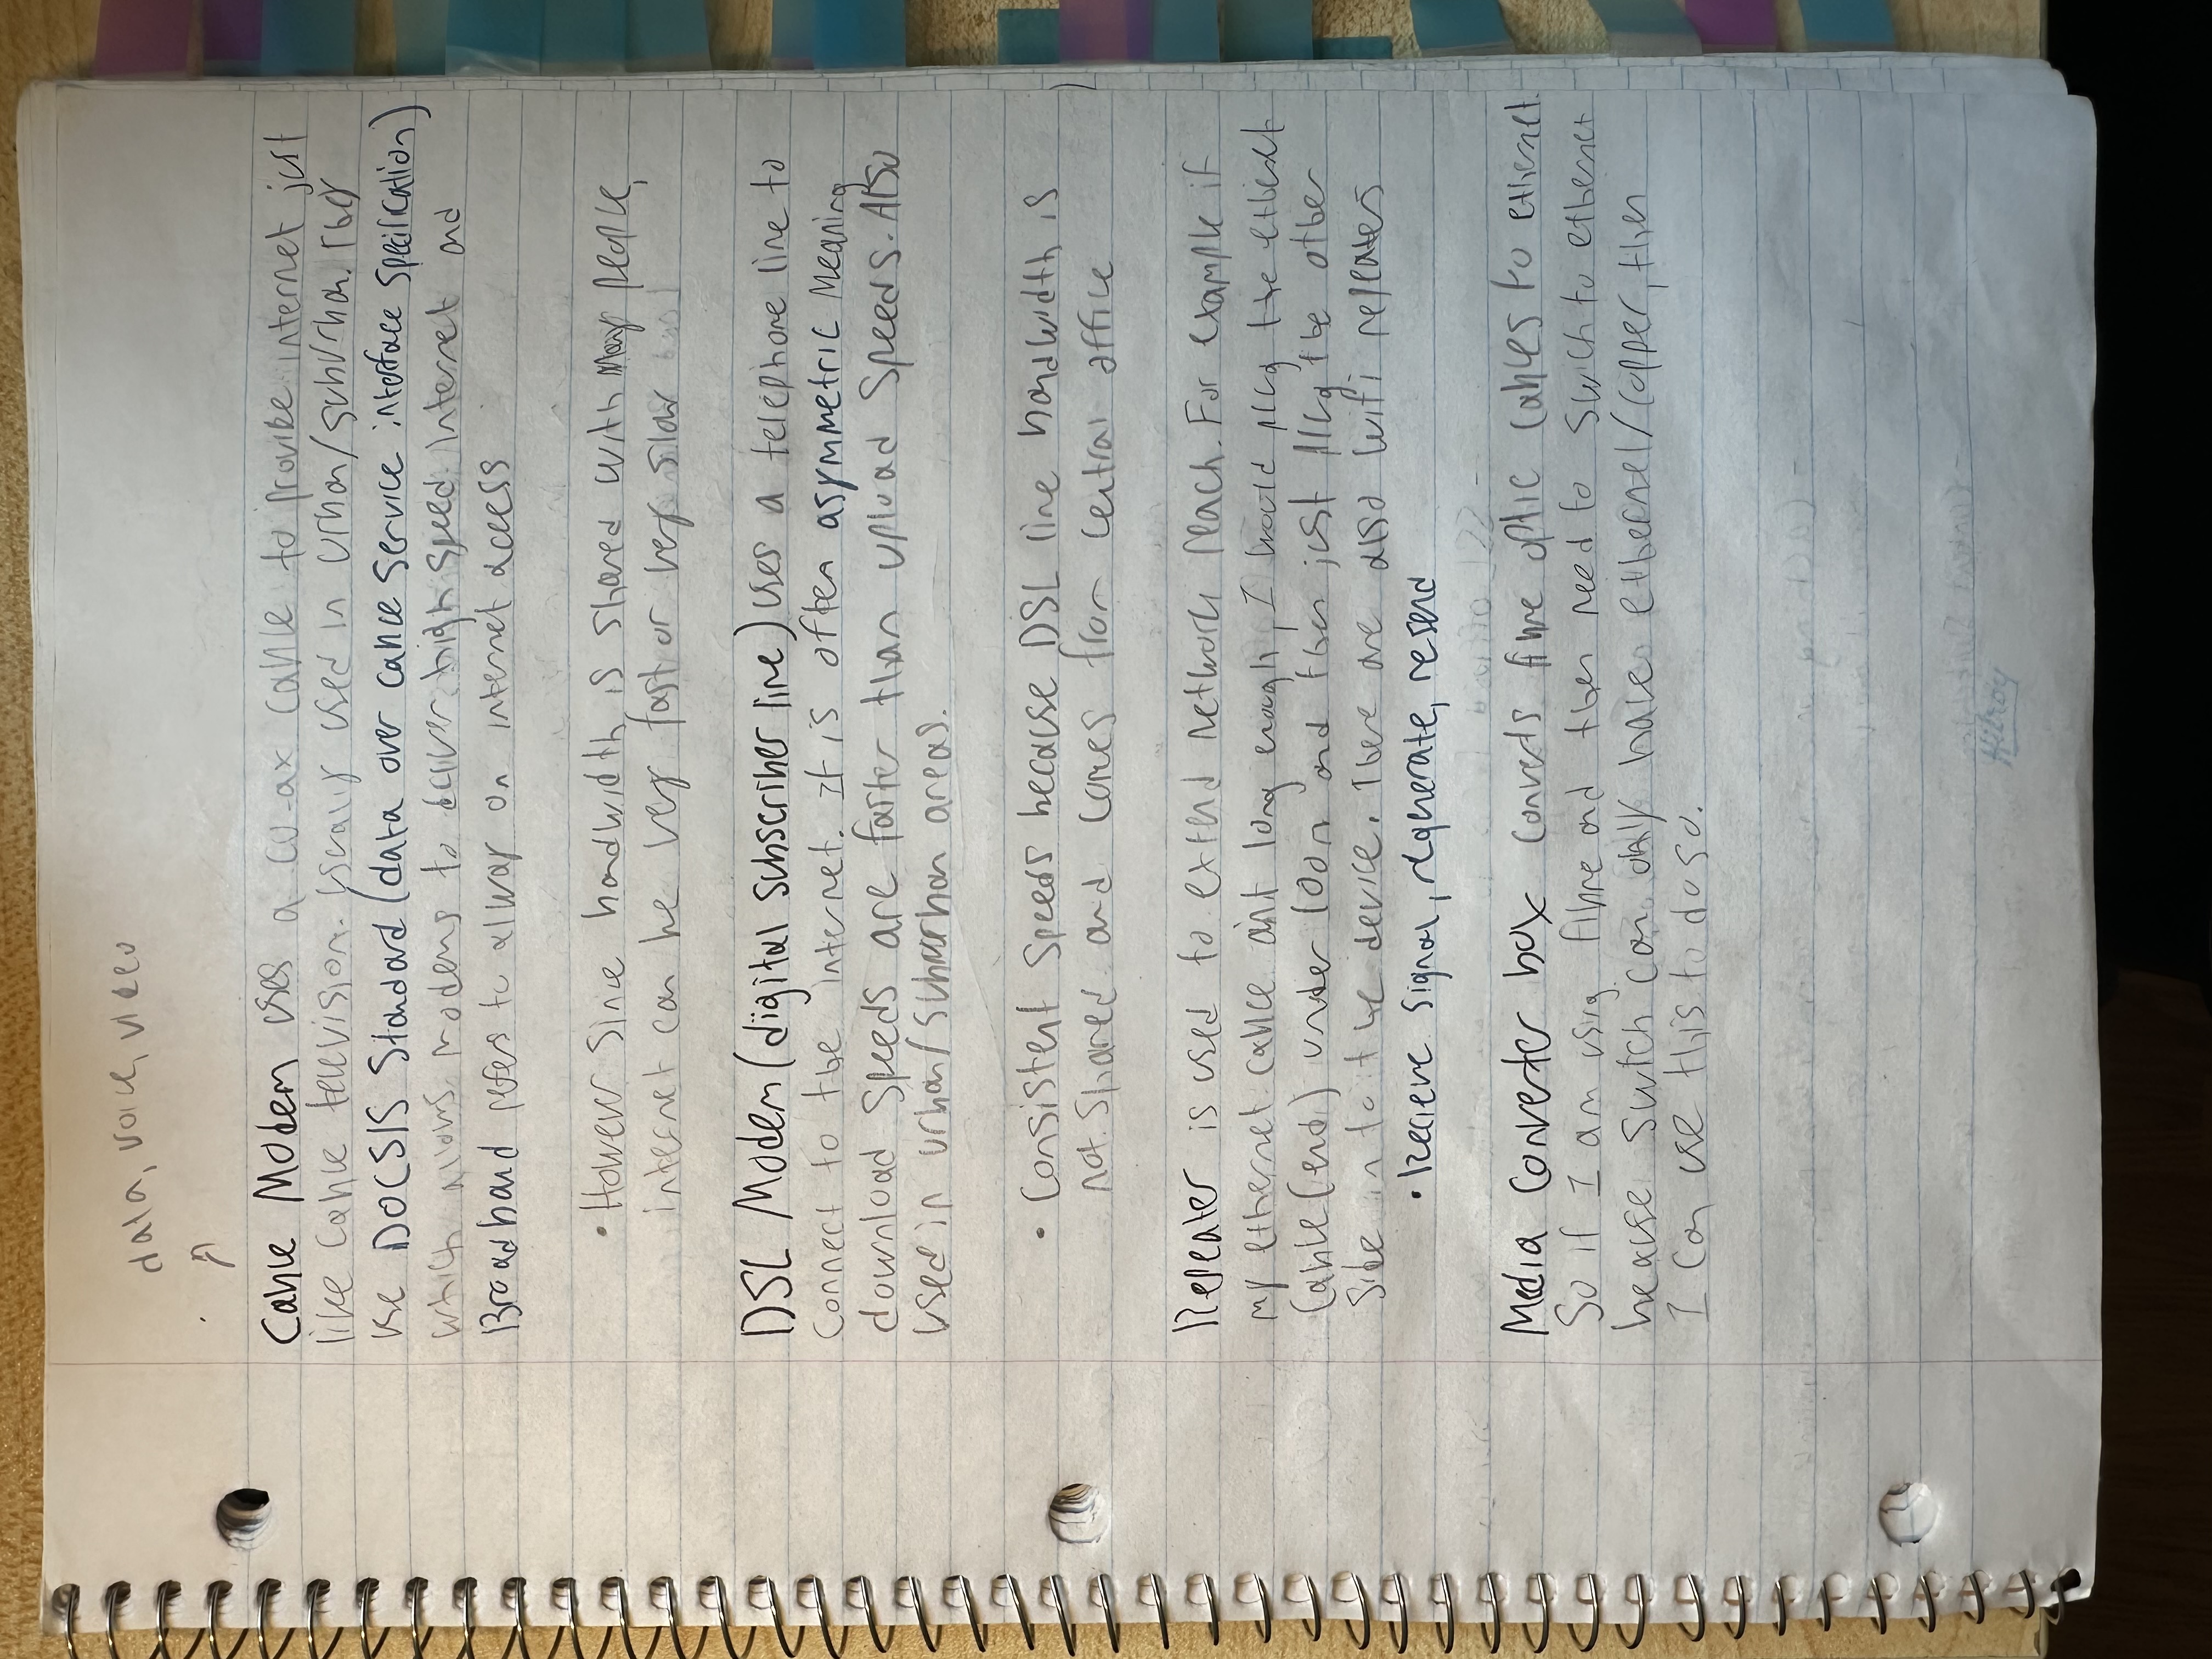 data, voice, video
Cable Modem uses a co-ax cable to provide internet just
like cable television. Usually used in urban/suburban. They
use DOCSIS Standard (data over cable service interface specification)
which allows modems to deliver high speed internet and
Broadband refers to alway on internet access
• However since bandwidth is shared with many people,
internet can be very fast or very slow
DSL Modem (digital subscriber line) uses a telephone line to
connect to the internet. It is often asymmetric meaning
download speeds are faster than upload speeds. Also
used in urban/suburban areas.
• Consistent speeds because DSL line bandwidth is
not shared and comes from central office
Repeater is used to extend network reach. For example if
my ethernet cable aint long enough, I would plug the ethernet
cable (end) under 100m and then just plug the other
side into the device. There are also wifi repeaters
• Recieve signal, regenerate, resend
Media Converter box converts fibre optic cables to ethernet.
So if I am using fibre and then need to swich to ethernet
because switch can only have ethernet/copper, then
I can use this to do so.
Hilroy